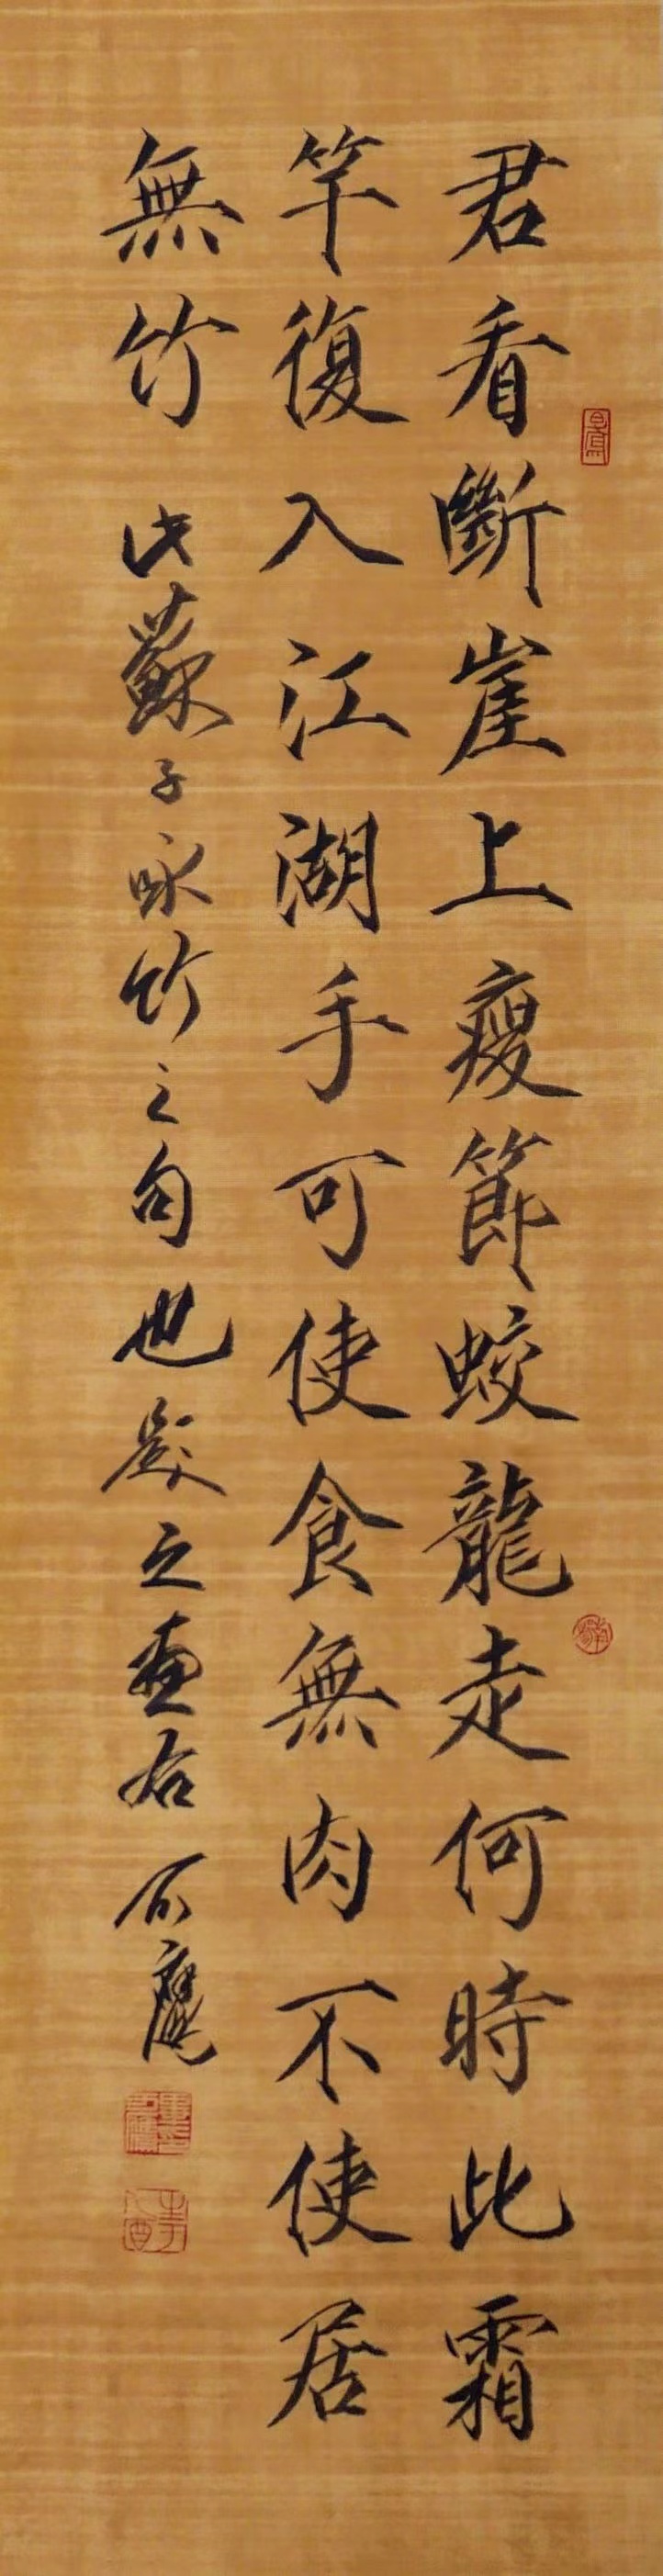 君看斷崖上瘦節蛟龍走何時此霜
竿復入江湖手可使食無肉不使居
無竹 此蘇子咏竹之句也題之畫右 石鷹